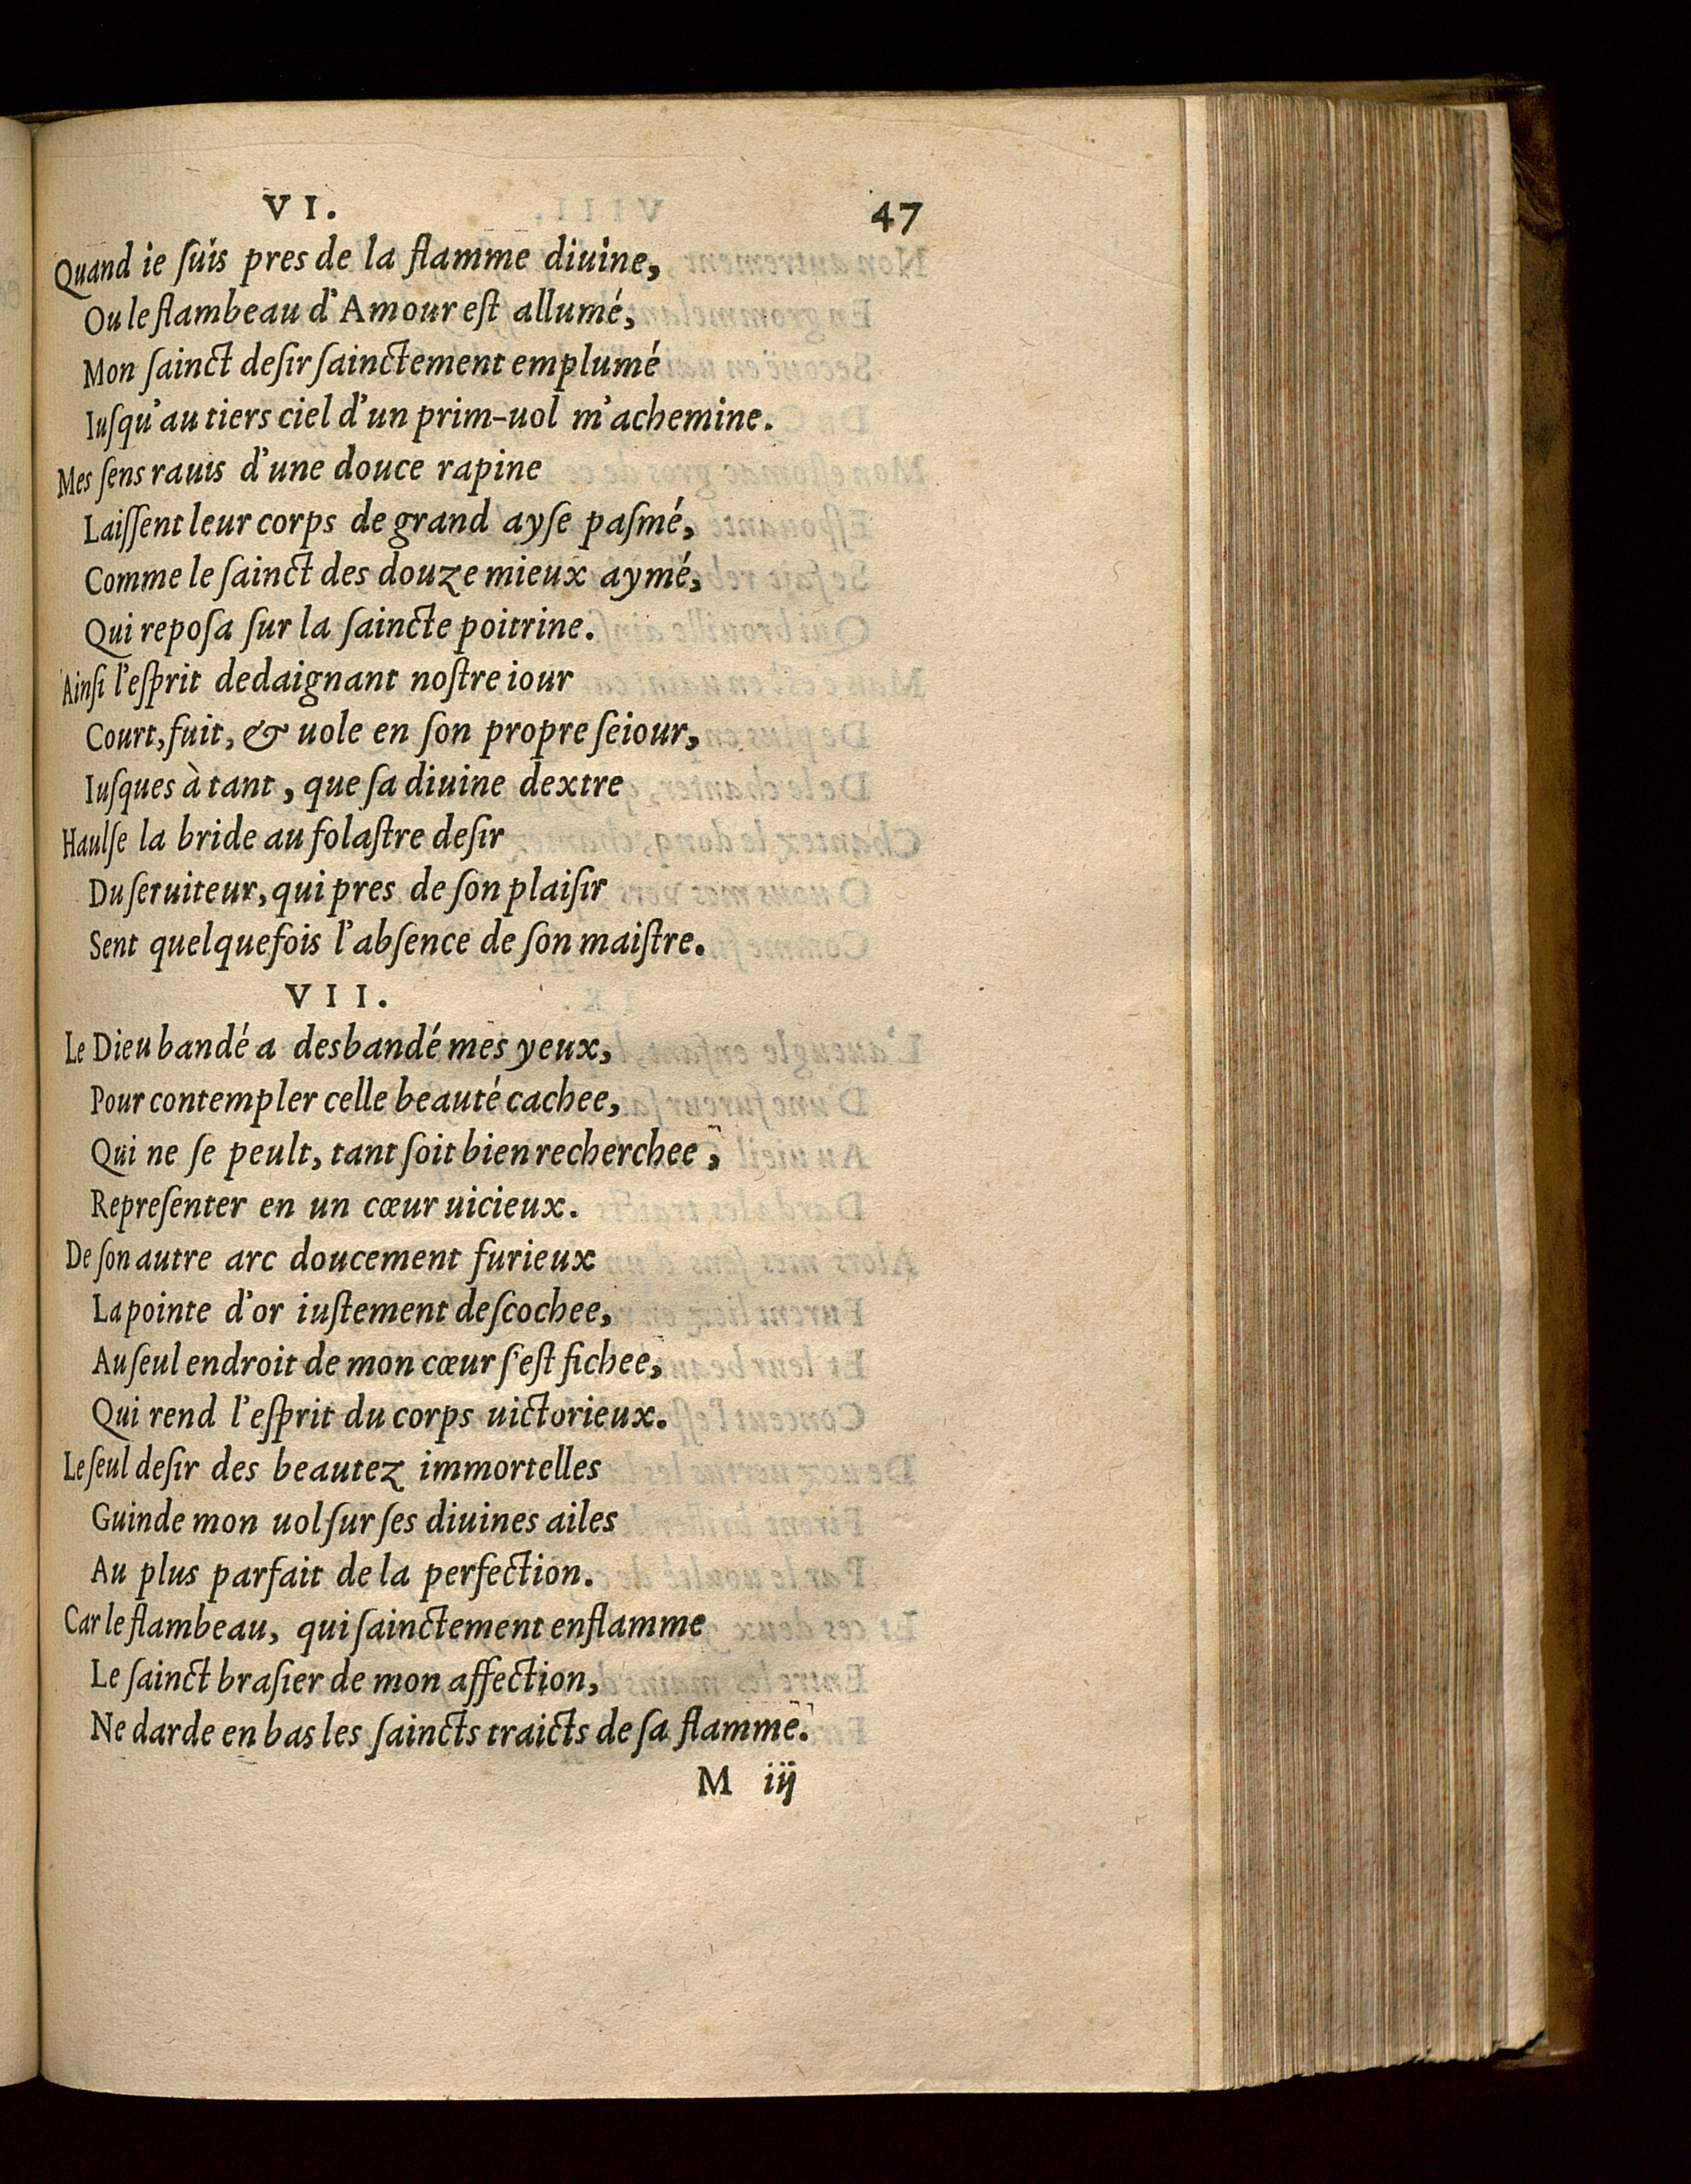 VI. 47
Quand ie ſuis pres de la flamme diuine,
Ou le flambeau d'Amour eſt allumé,
Mon ſainct deſir ſainctement emplumé
Iuſqu'au tiers ciel d'un prim-uol m'achemine.
Mes ſens rauis d'une douce rapine
Laiſſent leur corps de grand ayſe paſmé,
Comme le ſainct des douze mieux aymé,
Qui repoſa ſur la ſaincte poitrine.
Ainſi l'eſprit dedaignant noſtre iour
Court, fuit, & uole en ſon propre ſeiour,
Iuſques à tant, que ſa diuine dextre
Haulſe la bride au folaſtre deſir
Du ſeruiteur, qui pres de ſon plaiſir
Sent quelquefois l'abſence de ſon maiſtre.
VII.
Le Dieu bandé a desbandé mes yeux,
Pour contempler celle beauté cachee,
Qui ne ſe peult, tant ſoit bien recherchee,
Repreſenter en un cœur uicieux.
De ſon autre arc doucement furieux
La pointe d'or iuſtement deſcochee,
Au ſeul endroit de mon cœur ſ'eſt fichee,
Qui rend l'eſprit du corps uictorieux.
Le ſeul deſir des beautez immortelles
Guinde mon uol ſur ſes diuines ailes
Au plus parfait de la perfection.
Car le flambeau, qui ſainctement enflamme
Le ſainct braſier de mon affection,
Ne darde en bas les ſaincts traicts de ſa flamme.
M iij